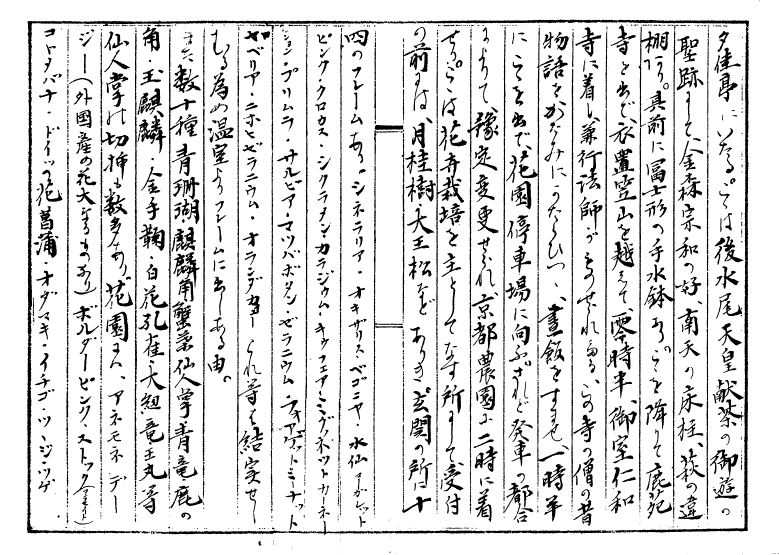 夕佳亭にいたる。こは後水尾天皇献茶の御遊の
聖跡にて、金森宗和の好、南天の床柱、萩の違
棚あり。其前に冨士形の手水鉢あり。こを降りて鹿苑
寺を出で、衣置笠山を越えて、零時半、御室仁和
寺に着し、兼行法師がものせれたる、この寺の僧の昔
物語をかたみにうたひつゝ、昼飯をすませ、一時半
にこを出で、花園停車場に向ふ。されど発車の都合
によりて、豫定変更せられ、京都農園に二時に着
せり。こは花卉栽培を主としてなす所にて受付
の前には、月桂樹大王松など ありき。玄関の所に十
四のフレームあり。シネラリア・オキザリス・ベゴニヤ・水仙
ピンク・クロカス・シクラメン・カラジウム・ミグネットカーネー
ション・プリムラ・サルビア・マツバボタン・ゼラニウム・
ベリア・ニホヒゼラニウム・オランダ これ等は結実せし
むる為め温室よりフレームに出しある由。
また数十種 青珊瑚 麒麟角 蟹葉仙人掌 青竜 鹿の
角・玉麒麟・金手鞠・白花孔雀・大紐・竜王丸等
仙人掌の切挿も数多あり。花園には、アネモネ デー
ジー(外国産の花大なるものあり)ボルダーピンク・ストック
コトタバナ・ドイツ花菖蒲 オダマキ・イチゴ・ツージツゲ